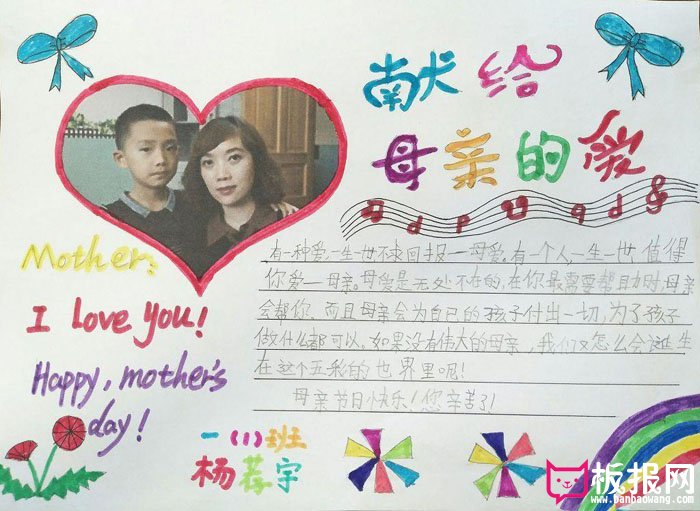 献给
母亲的爱
Mother:
I love you!
Happy, mother's
day!
有一种爱一生一世不求回报——母爱。有一个人一生一世值得
你爱——母亲。母爱是无处不在的,在你最需要帮助时,母亲
会帮你。而且母亲会为自己的孩子付出一切,为了孩子
做什么都可以,如果没有伟大的母亲,我们又怎么会诞生
在这个五彩的世界里呢!
母亲节日快乐!您辛苦了!
一(1)班
杨荐宇
板报网
www.banbaowang.com